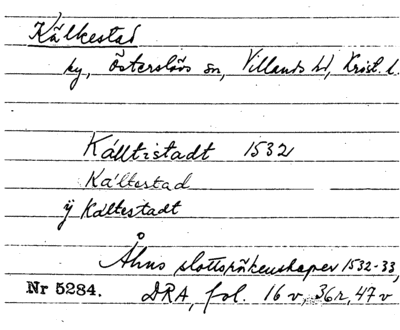 Kälkestad
by, Österslövs sn, Villands hd, Krist. l.
Kálltistadt 1532
Káltestad
ÿ Káltestadt
Åhus slottsräkenskaper 1532-33,
Nr 5284. DRA, fol. 16 v, 36r, 47 v